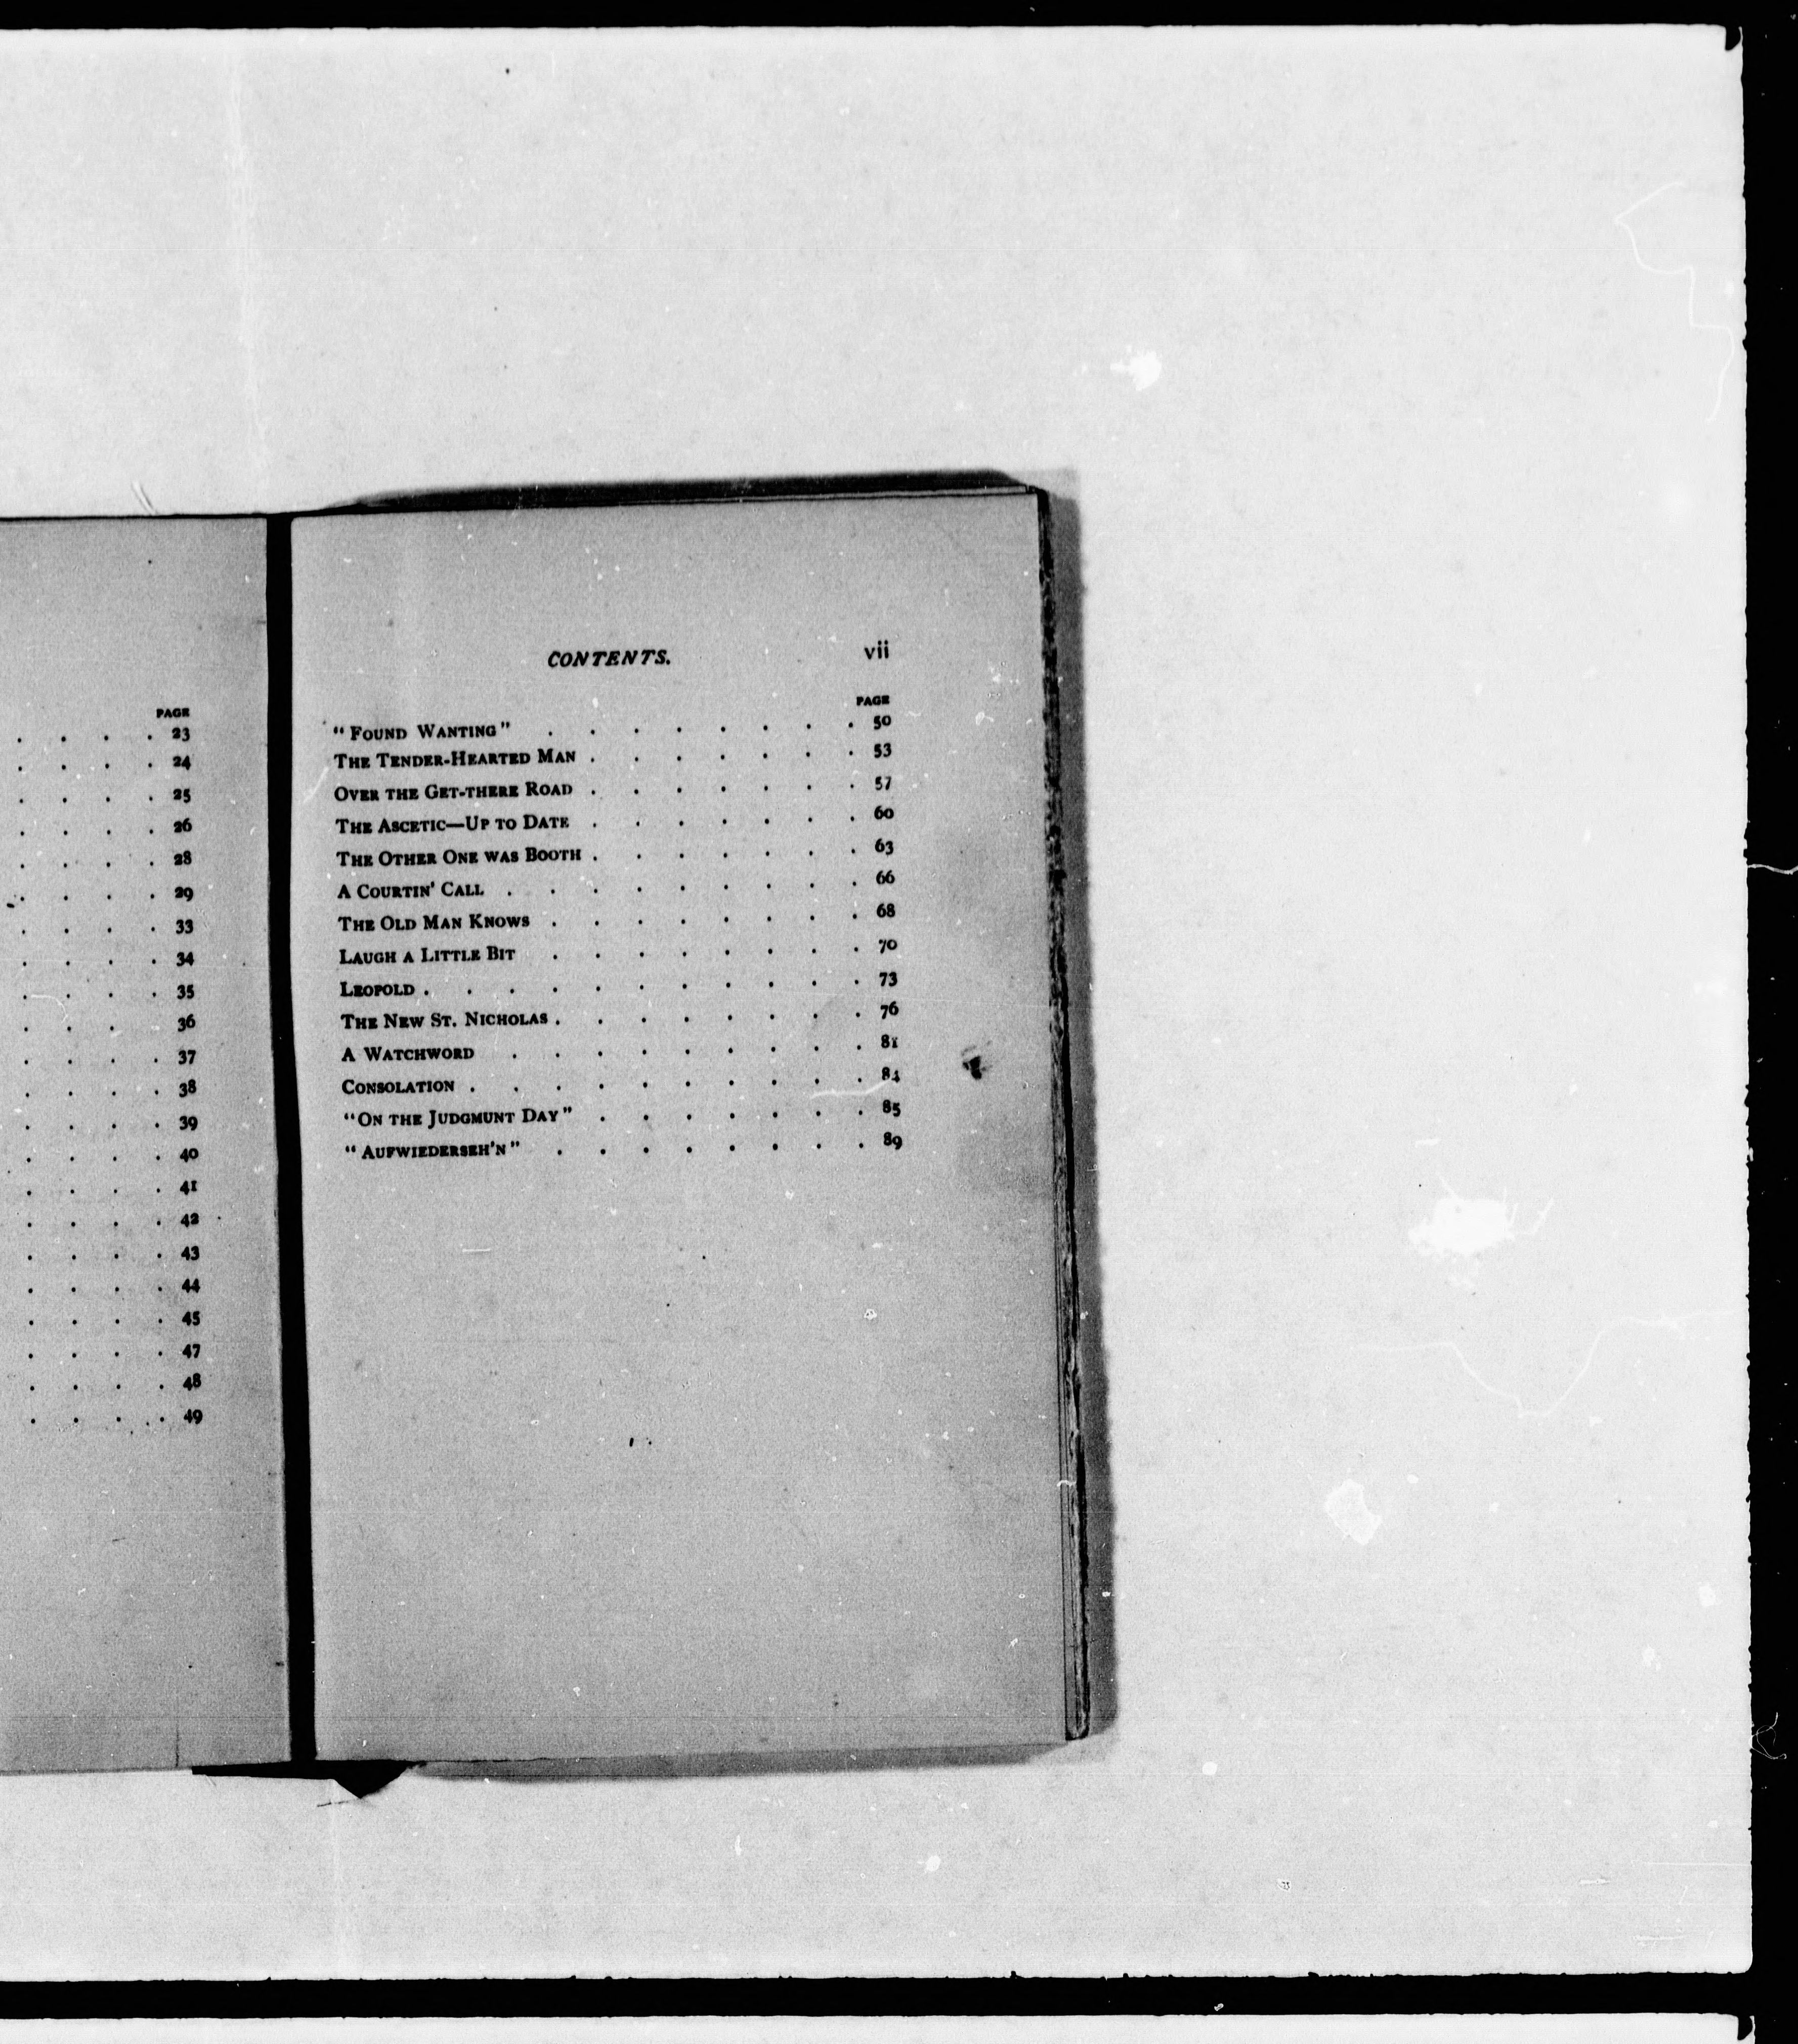 PAGE
. . . . 23
. . . . 24
. . . . 25
. . . . 26
. . . . 28
. . . . 29
. . . . 33
. . . . 34
. . . . 35
. . . 36
. . . . 37
. . . . 38
. . . . 39
. . . . 40
. . . . 41
. . . . 42
. . . . 43
. . . . 44
. . . . 45
. . . . 47
. . . . 48
. . . . 49
CONTENTS. vii
PAGE
“FOUND WANTING” . . . . . . . . 50
THE TENDER-HEARTED MAN . . . . . . . 53
OVER THE GET-THERE ROAD . . . . . . . 57
THE ASCETIC—UP TO DATE . . . . . . . 60
THE OTHER ONE WAS BOOTH . . . . . . . 63
A COURTIN' CALL . . . . . . . . . 66
THE OLD MAN KNOWS . . . . . . . . 68
LAUGH A LITTLE BIT . . . . . . . . 70
LEOPOLD . . . . . . . . . . . 73
THE NEW ST. NICHOLAS . . . . . . . . 76
A WATCHWORD . . . . . . . . . 81
CONSOLATION . . . . . . . . . . 84
“ON THE JUDGMUNT DAY” . . . . . . . 85
“AUFWIEDERSEH'N” . . . . . . . . 89